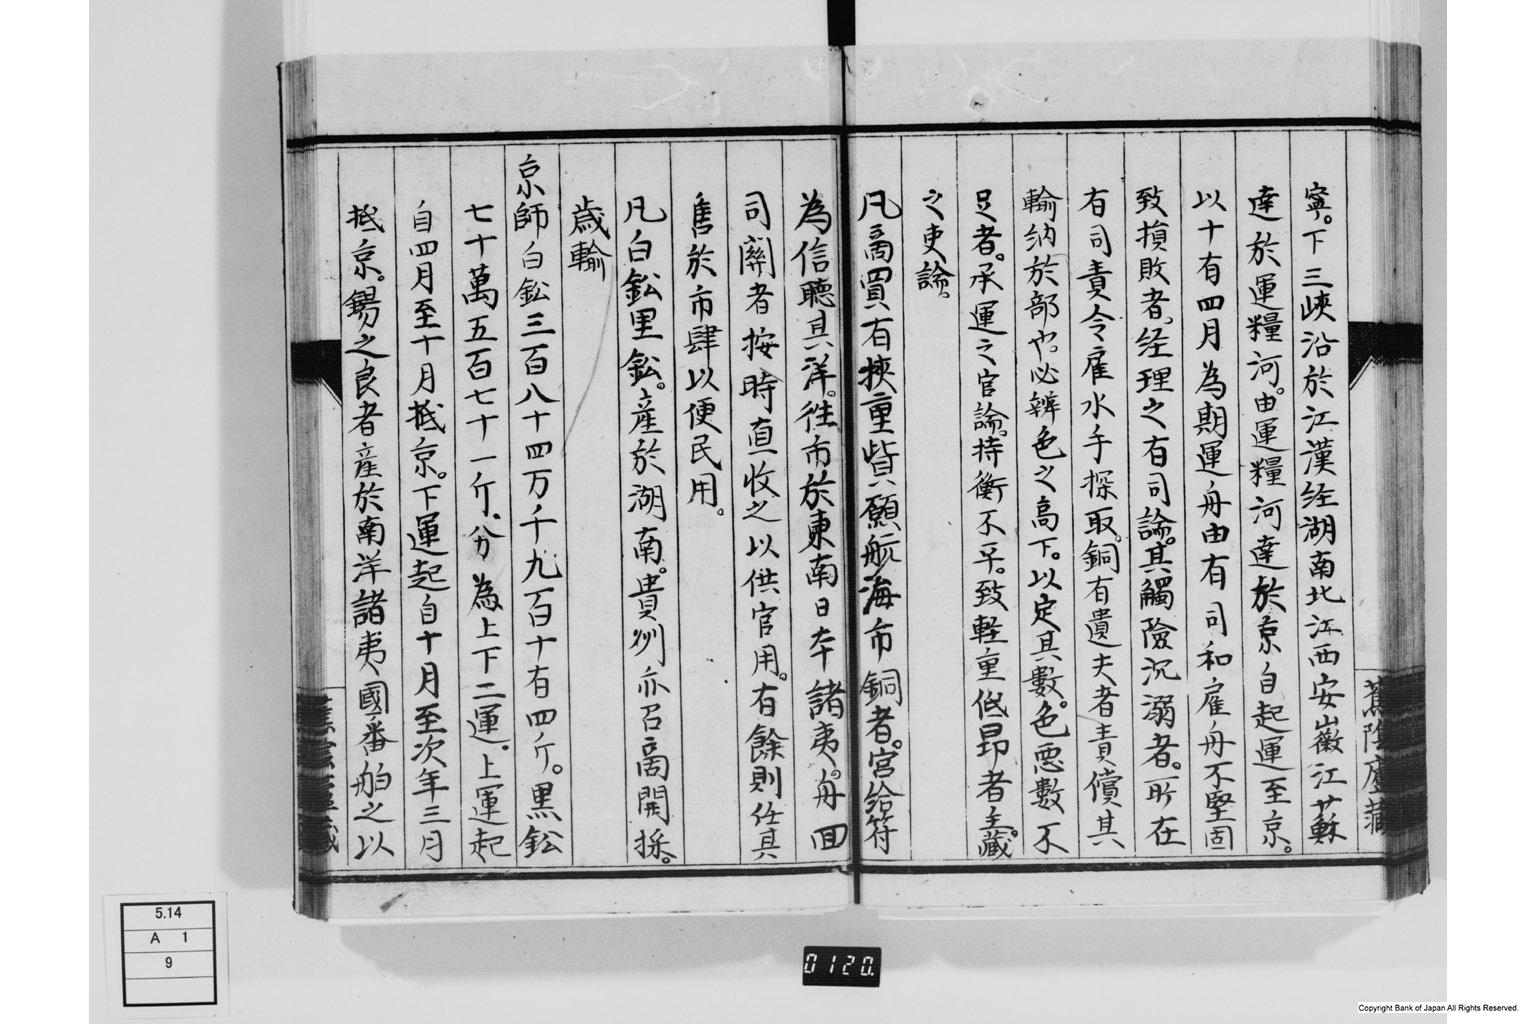 寧。下三峽沿於江漢経湖南北江西安徽江蘇
達於運糧河。由運糧河達於京自起運至京。
以十有四月為期運舟由有司和雇舟不堅固
致損敗者経理之有司論。其觸險沉溺者。所在
有司責令雇水手探取。銅有遺夫者責償其
輸納於部也。必辨色之高下。以定其數。色悪數不
足者。承運之官論。持衡不平。致軽重低昂者主藏
之吏論。
凡商買有挾重貲願航海市銅者。官給符
為信聽其洋。往市於東南日本諸夷。舟回
司關者按時直收之以供官用。有餘則任其
售於市肆以便民用。
凡白鈆黒鈆。産於湖南。貴州亦召商開採。
歳輸
京師白鈆三百八十四万千九百十有四斤。黒鈆
七十萬五百七十一斤。分為上下二運。上運起
自四月至十月抵京。下運起自十月至次年三月
抵京。錫之良者産於南洋諸夷國番舶之以
蕉陰廬藏
5.14
A 1
9
0120.
Copyright Bank of Japan All Rights Reserved.